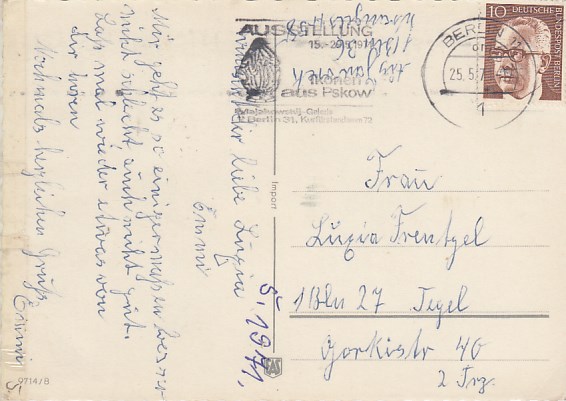 AUSSTELLUNG
15.-29.5.1971
Ikonen
aus Pskow
Majakowskij-Galerie
1 Berlin 31, Kurfürstendamm 72
BERLIN 11
25.5.71
10
DEUTSCHE
BUNDESPOST BERLIN
Frau
Luzia Frentzel
1 Bln 27 Tegel
Gorkistr 40
2 Trz.
1 Bln 36
liebe Luzia
Mir geht es so einigermaßen
nicht schlecht auch nicht gut.
Laß mal wieder etwas von
dir hören
Nochmals herzlichen Gruß
Emmi
Emmi
5. 1971.
Import
9714/B